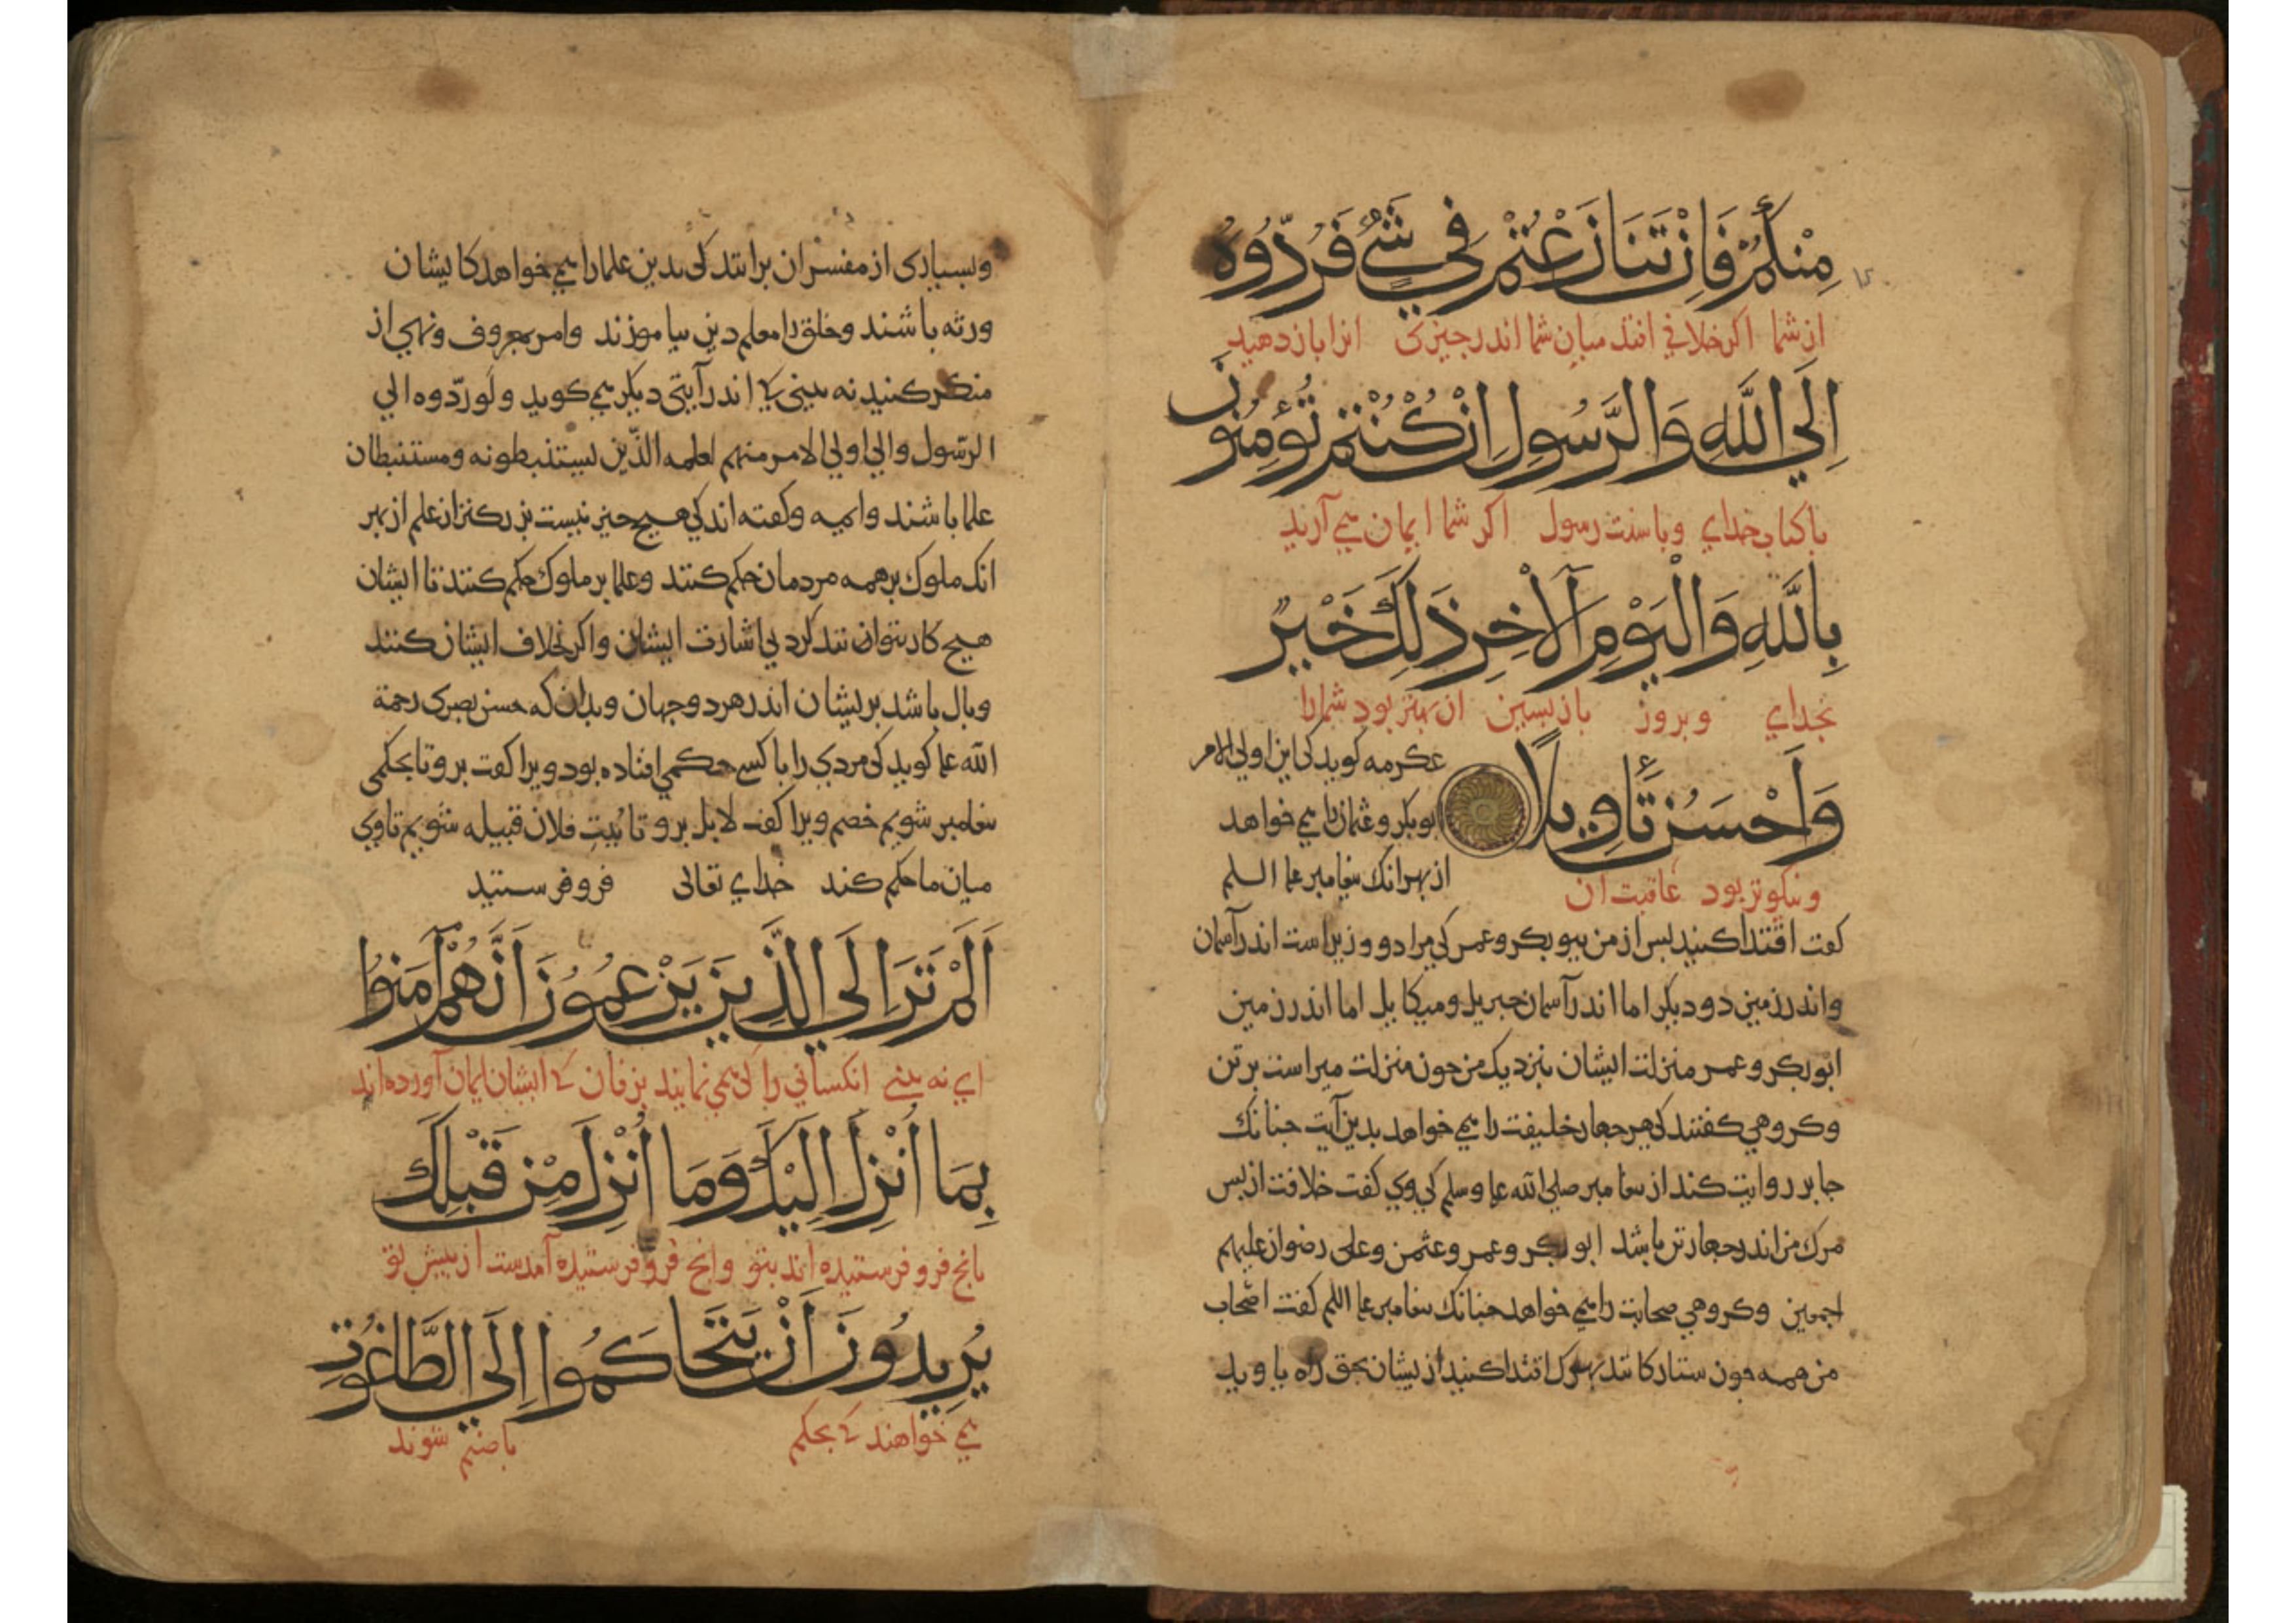 مِنْكُمْ فَاِنْ تَنَازَعْتُمْ فِي شَيْءٍ فَرُدُّوهُ
از شما اکر خلافی افتد میان شما اندر جیزی انرا باز دهید
اِلَي اللَّهِ وَالرَّسُولِ اِنْ كُنْتُمْ تُؤْمِنُونَ
با کتاب خدای وبا سنت رسول اکر شما ایمان می آرید
بِاللَّهِ وَالْيَوْمِ الْآخِرِ ذَلِكَ خَيْرٌ
بخدای وبروز بازبسین ان بهتر بود شما را
وَاَحْسَنُ تَأْوِيلًا
ونیکوتر بود عاقبت ان
عکرمه کوید کی این اولی الامر
بوبکر وعثمان را می خواهد
از بهر انک بیغامبر علیه السلم
کفت اقتدا کنید بس از من ببوبکر وعمر کی مرا دو وزیر است اندر آسمان
واندر زمین دو دیکر اما اندر آسمان جبریل ومیکایل اما اندر زمین
ابوبکر وعمر منزلت ایشان بنزدیک من جون منزلت سراست بر تن
وکروهی کفتند کی هر جهار خلیفت را می خواهد بدین آیت جنانک
جابر روایت کند از بیغامبر صلی الله علیه وسلم کی وی کفت خلافت از بس
مرک من اندر جهار تن باشد ابوبکر وعمر وعثمن وعلی رضوان علیهم
اجمعین وکروهی صحابت را می خواهد جنانک بیغامبر علیه السلم کفت اصحاب
من همه جون ستارکانند بهرک اقتدا کنید از یشان بحق راه یاوید
وبسیاری از مفسران برانند کی بدین علما را می خواهد کایشان
ورثه باشند وخلق را معلم دین بیاموزند وامر بمعروف ونهی از
منکر کنید نه بینی کی اندر آیتی دیکر می کوید ولو ردّوه الی
الرسول والی اولی الامر منهم لعلمه الذین یستنبطونه ومستنبطان
علما باشند وایمه وکفته اند کی هیج جیز نیست بزرکتر از علم از بهر
انک ملوک بر همه مردمان حکم کنند وعلما بر ملوک حکم کنند تا ایشان
هیج کار نتوانند کرد بی اشارت ایشان واکر خلاف ایشان کنند
وبال باشد بریشان اندر هر دو جهان وبدان که حسن بصری رحمة
الله علیه کوید کی مردی را با کسی حکمی افتاده بود ویرا کفت برو تا بحکمی
بیغامبر شویم خصم ویرا کفت لا بل برو تا بیت فلان قبیله شویم تا وی
میان ما حکم کند خدای تعالی فرو فرستید
اَلَمْ تَرَ اِلَي الَّذِينَ يَزْعُمُونَ اَنَّهُمْ آمَنُوا
ای نه بینی انکسانی را کی می نمایند بزفان کی ایشان ایمان آورده اند
بِمَا اُنْزِلَ اِلَيْكَ وَمَا اُنْزِلَ مِنْ قَبْلِكَ
بانج فرو فرستیده اند بتو وانج فرو فرستیده آمدست از بیش تو
يُرِيدُونَ اَنْ يَتَحَاكَمُوا اِلَي الطَّاغُوتِ
می خواهند کی بحکم با صنم شوند